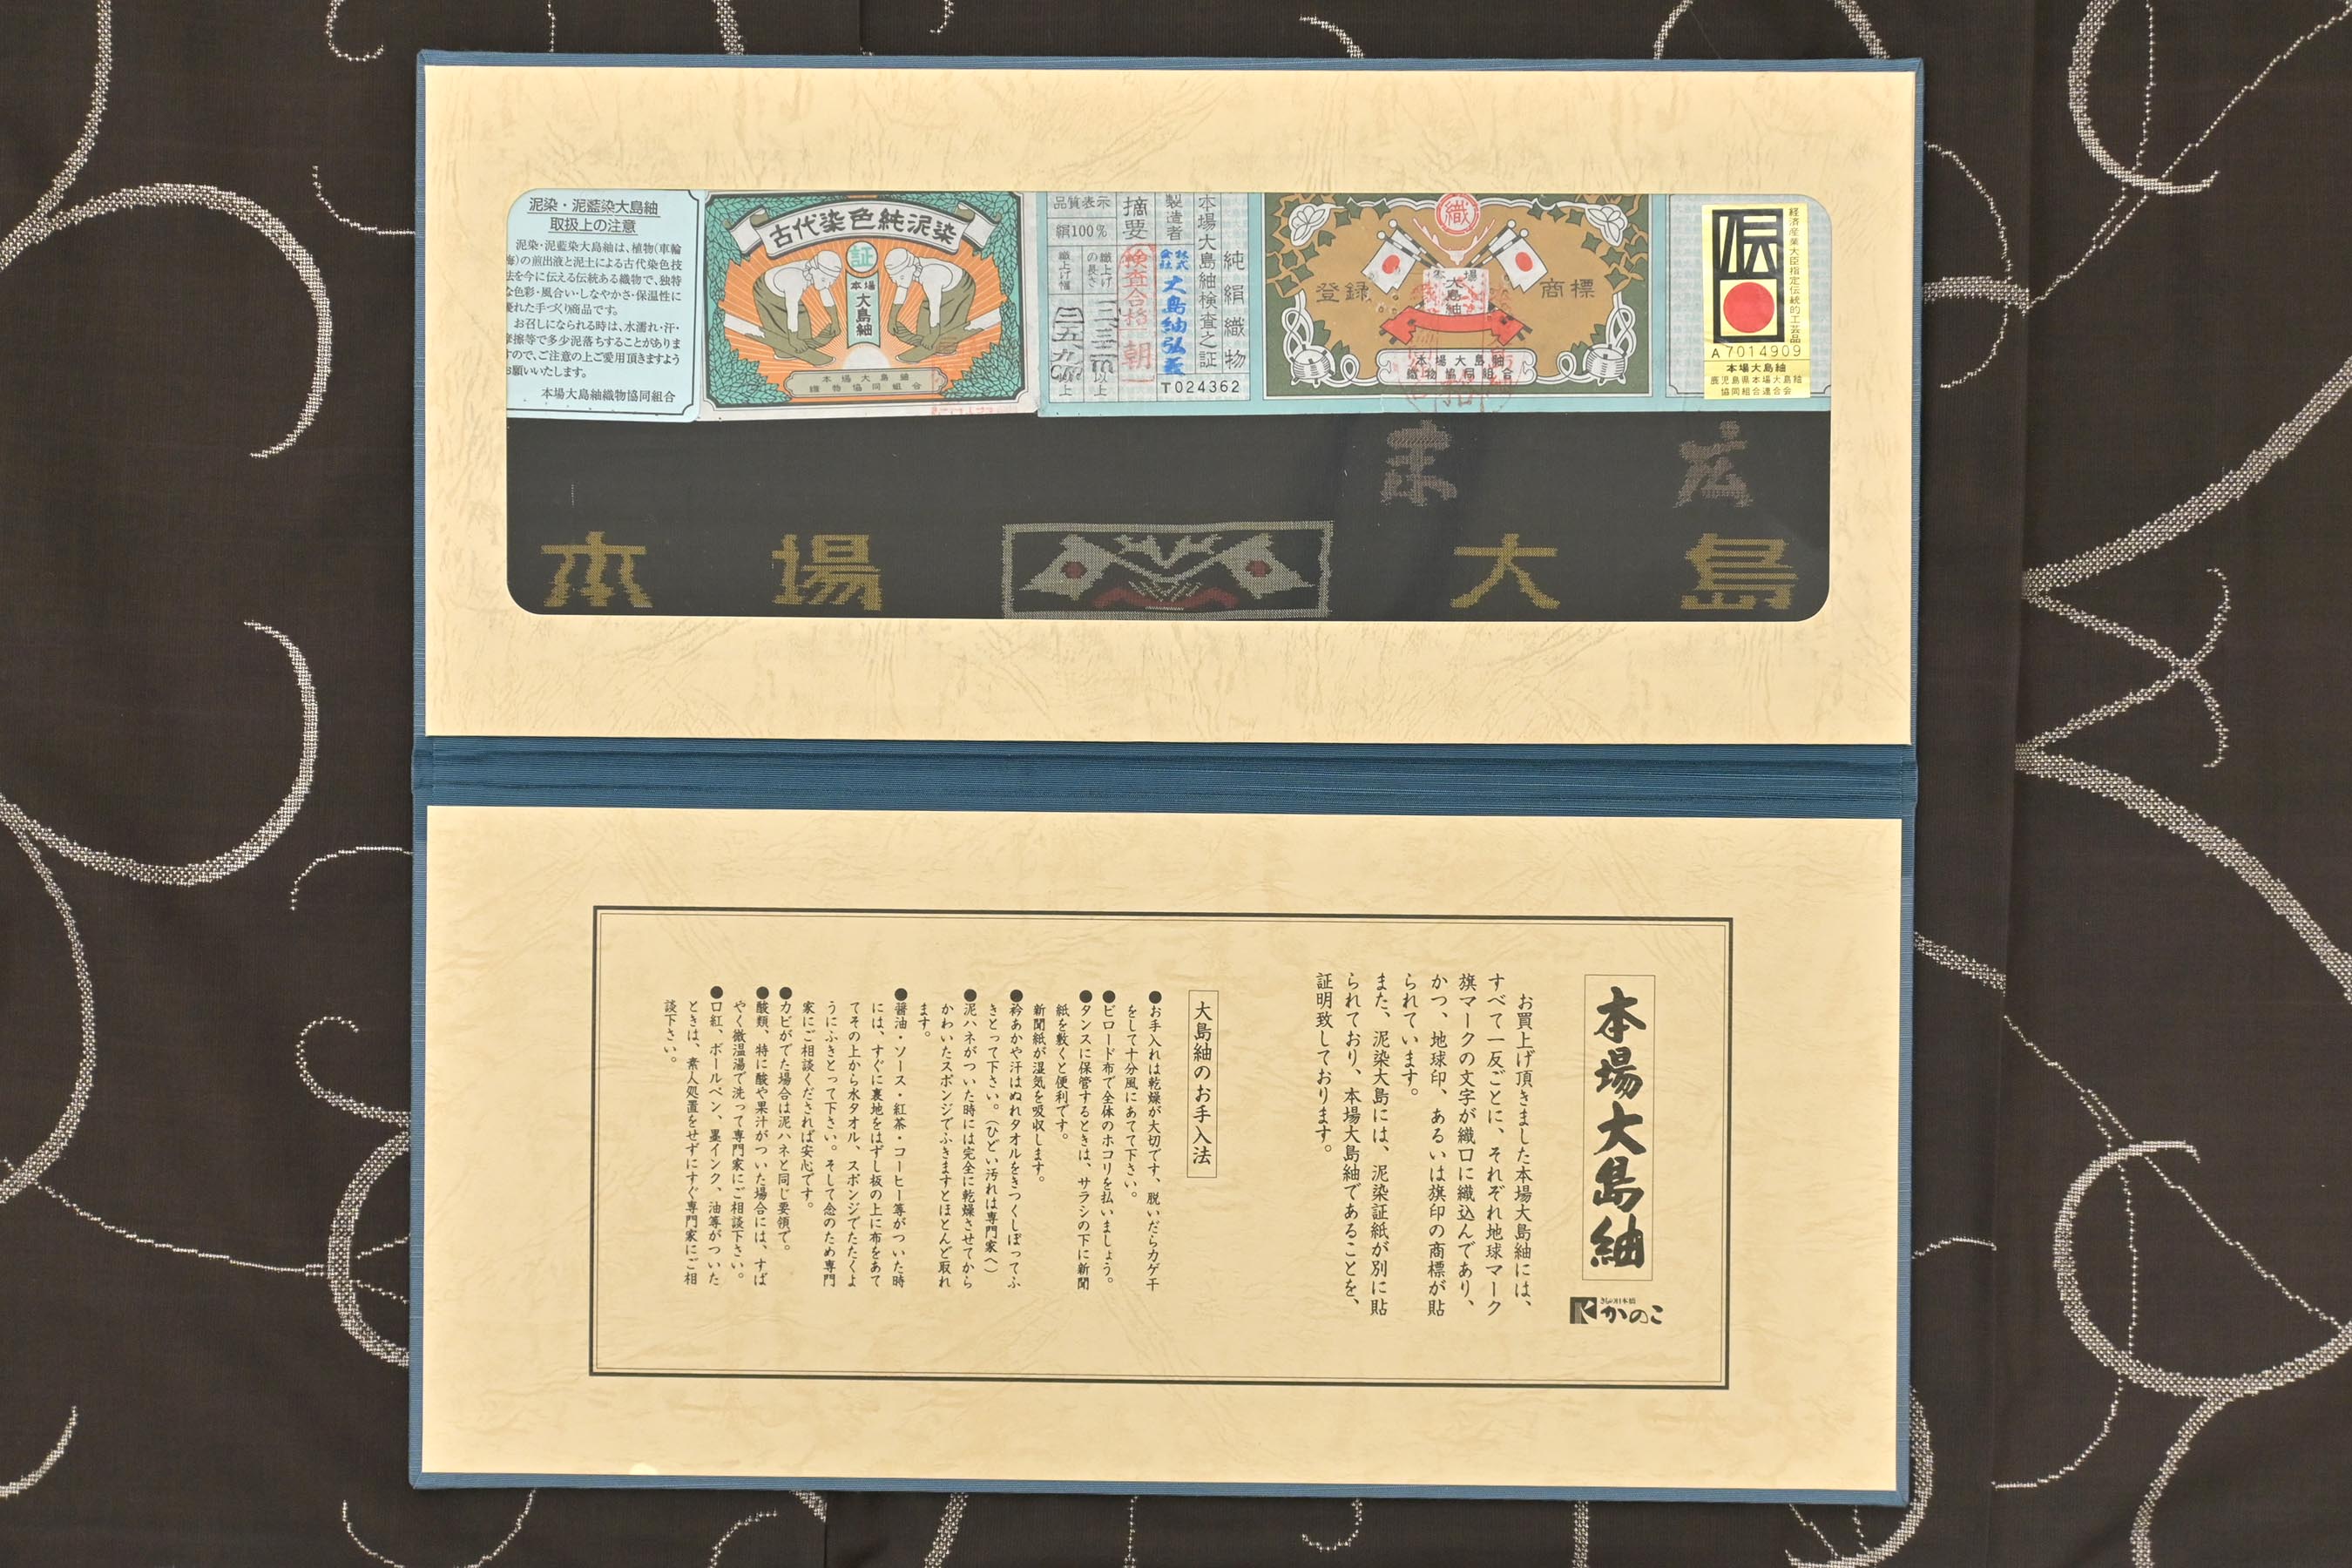 泥染・泥藍染大島紬
取扱上の注意
泥染・泥藍染大島紬は、植物(車輪
梅)の煎出液と泥土による古代染色技
法を今に伝える伝統ある織物で、独特
な色彩・風合い・しなやかさ・保温性に
優れた手づくり商品です。
お召しになられる時は、水濡れ・汗・
摩擦等で多少泥落ちすることがありま
すので、ご注意の上ご愛用頂きますよう
お願いいたします。
本場大島紬織物協同組合
古代染色純泥染
証
本場
大島紬
本場大島紬
織物協同組合
純絹織物
本場大島紬検査之証
T024362
製造者
株式
会社
大島紬
摘要
検査合格
朝
品質表示
絹100%
織上げ
の長さ
以上
織上げ幅
以上
織
登録
商標
本場
大島紬
本場大島紬
織物協同組合
伝
経済産業大臣指定伝統的工芸品
A 7014909
本場大島紬
鹿児島県本場大島紬
協同組合連合会
末広
本場
大島
本場大島紬
きもの日本橋
かのこ
お買上げ頂きました本場大島紬には、
すべて一反ごとに、それぞれ地球マーク
旗マークの文字が織口に織込んであり、
かつ、地球印、あるいは旗印の商標が貼
られています。
また、泥染大島には、泥染証紙が別に貼
られており、本場大島紬であることを、
証明致しております。
大島紬のお手入法
●お手入れは乾燥が大切です、脱いだらカゲ干
をして十分風にあてて下さい。
●ビロード布で全体のホコリを払いましょう。
●タンスに保管するときは、サラシの下に新聞
紙を敷くと便利です。
新聞紙が湿気を吸収します。
●衿あかや汗はぬれタオルをきつくしぼってふ
きとって下さい。(ひどい汚れは専門家へ)
●泥ハネがついた時には完全に乾燥させてから
かわいたスポンジでふきますとほとんど取れ
ます。
●醤油・ソース・紅茶・コーヒー等がついた時
には、すぐに裏地をはずし板の上に布をあて
てその上から水タオル、スポンジでたたくよ
うにふきとって下さい。そして念のため専門
家にご相談くだされば安心です。
●カビがでた場合は泥ハネと同じ要領で。
●酸類、特に酸や果汁がついた場合には、すば
やく微温湯で洗って専門家にご相談下さい。
●口紅、ボールペン、墨インク、油等がついた
ときは、素人処置をせずにすぐ専門家にご相
談下さい。